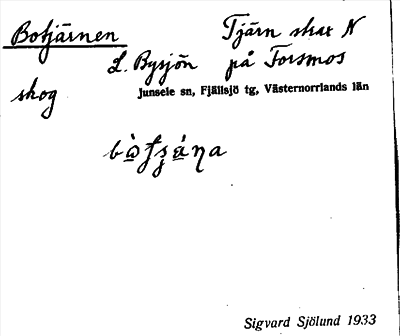 Botjärnen Tjärn skax N
L. Bysjön på Forsmos
skog Junsele sn, Fjällsjö tg, Västernorrlands län
Sigvard Sjölund 1933